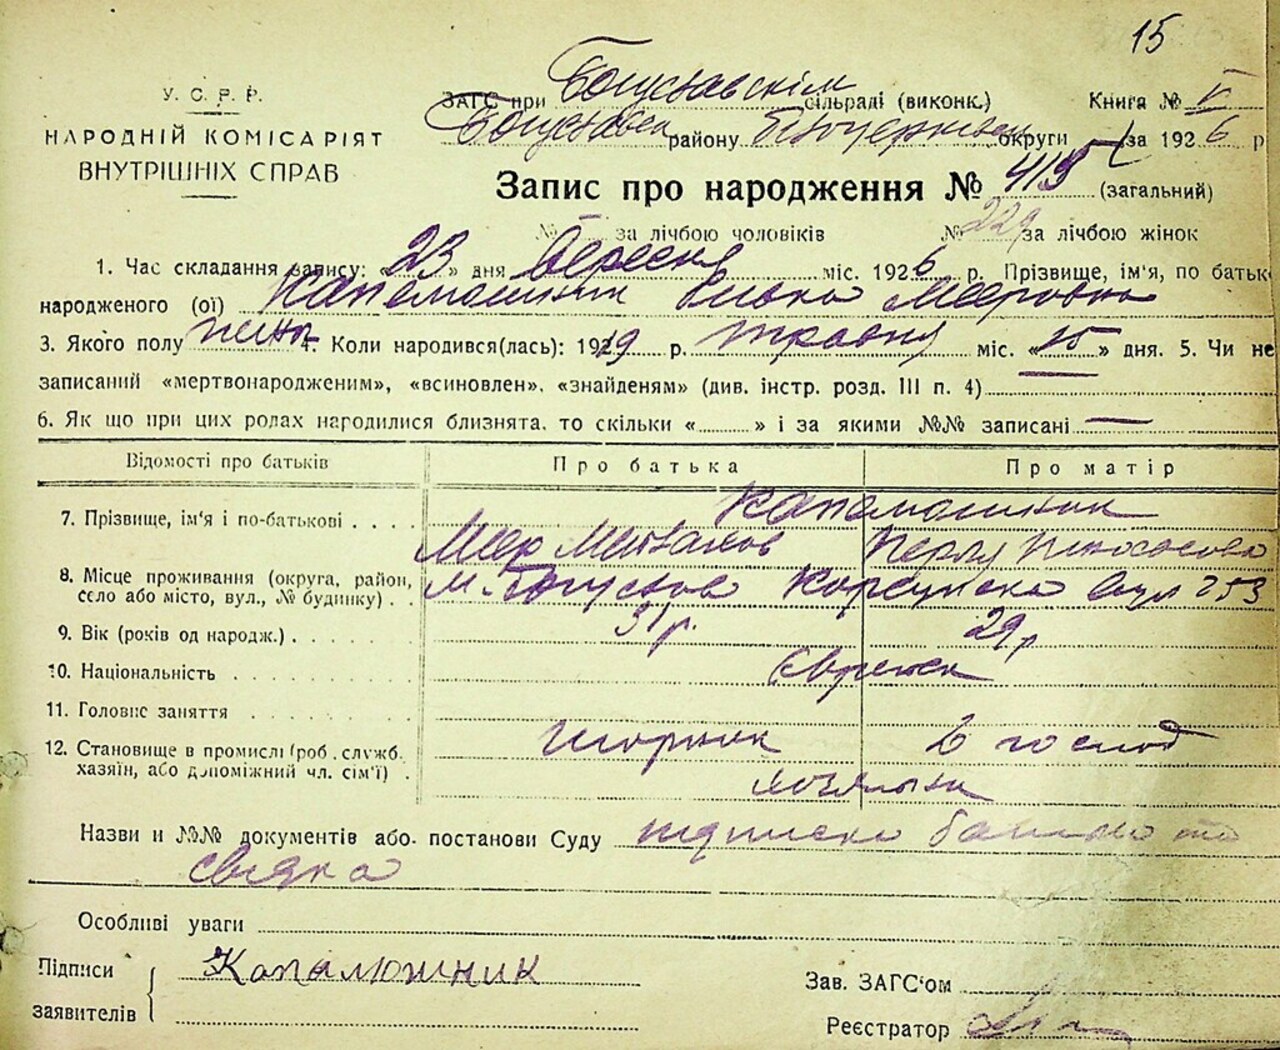 15
У. С. Р. Р.
НАРОДНІЙ КОМІСАРІЯТ
ВНУТРІШНІХ СПРАВ
ЗАГС при Богуславскім сільраді (виконк.) Книга № V
Богуславськ району Білоцерківськ округи за 1926 р
Запис про народження № 413 (загальний)
№ за лічбою чоловіків № 229 за лічбою жінок
1. Час складання запису: 23 » дня Вересня міс. 1926 р. Прізвище, ім'я, по батьк
народженого (ої) Капалюшник Ривка Мееровна
3. Якого полу жіно 4. Коли народився(лась): 1919 р. травня міс. «15» дня. 5. Чи не
записаний «мертвонародженим», «всиновлен», «знайденям» (див. інстр. розд. III п. 4)
6. Як що при цих родах народилися близнята, то скільки « » і за якими №№ записані —
Відомості про батьків Про батька Про матір
Капалюшник
7. Прізвище, ім'я і по-батькові . . . . Меер Перля
8. Місце проживання (округа, район, м. Богуслав Корсунска вул 253
село або місто, вул., № будинку) . .
9. Вік (років од народж.) . . . . . . 31 р. 29 р
10. Національність . . . . . . . Євреиск
11. Головне заняття . . . . . . .
12. Становище в промислі (роб. служб. в господ
хазяїн, або допоміжний чл. сім'ї) .
Назви и №№ документів або постанови Суду підписка батька та
свідка
Особливі уваги
Підписи Капалюшник Зав. ЗАГС'ом
заявителів Реєстратор